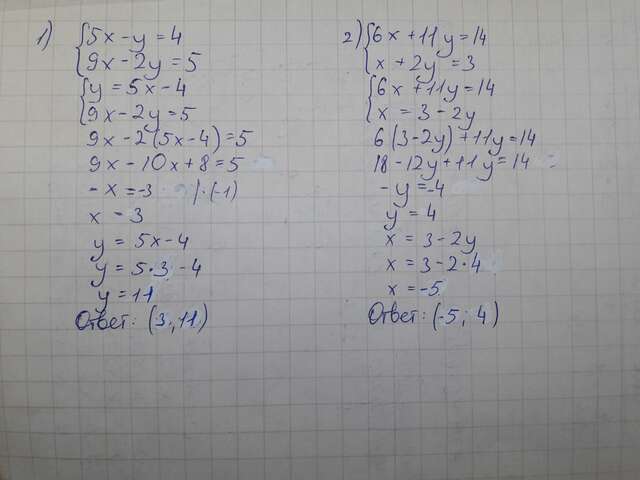 1)
5x - y = 4
9x - 2y = 5
y = 5x - 4
9x - 2y = 5
9x - 2(5x - 4) = 5
9x - 10x + 8 = 5
- x = -3 |·(-1)
x = 3
y = 5x - 4
y = 5·3 - 4
y = 11
Ответ: (3; 11)
2)
6x + 11y = 14
x + 2y = 3
6x + 11y = 14
x = 3 - 2y
6(3 - 2y) + 11y = 14
18 - 12y + 11y = 14
- y = -4
y = 4
x = 3 - 2y
x = 3 - 2·4
x = -5
Ответ: (-5; 4)